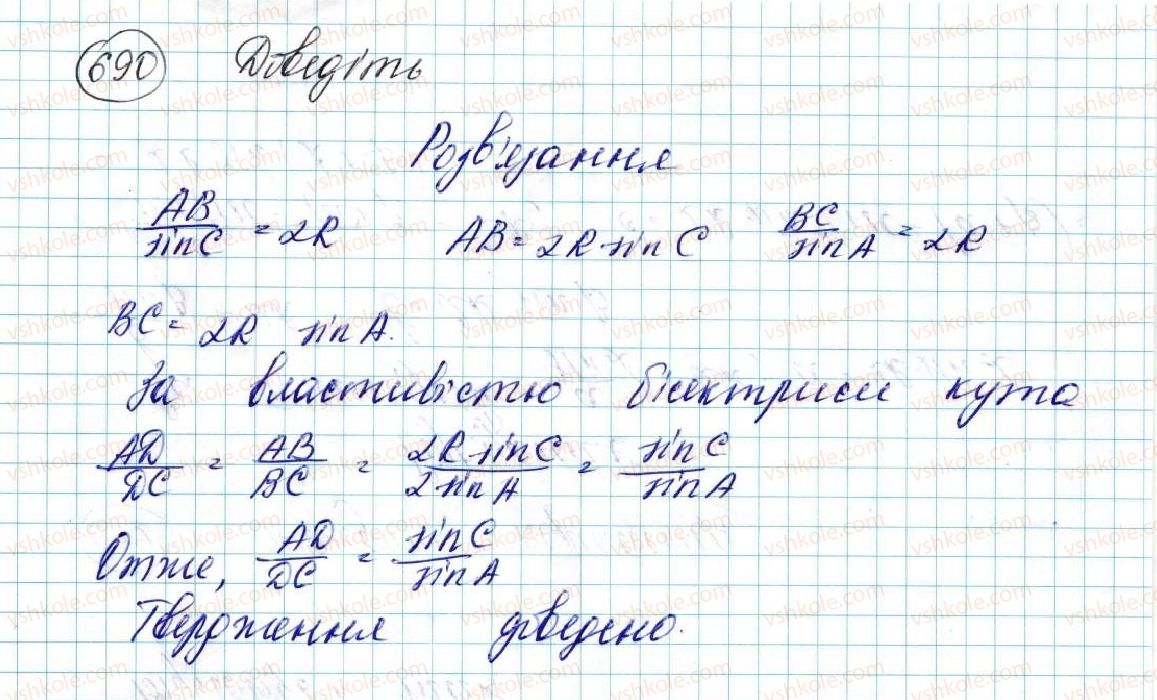 690 Доведіть
Розв'язання
AB/sinC = 2R AB = 2R·sinC BC/sinA = 2R
BC = 2R sinA.
За властивістю бісектриси кута
AD/DC = AB/BC = 2R·sinC/2sinA = sinC/sinA
Отже, AD/DC = sinC/sinA
Твердження доведено.